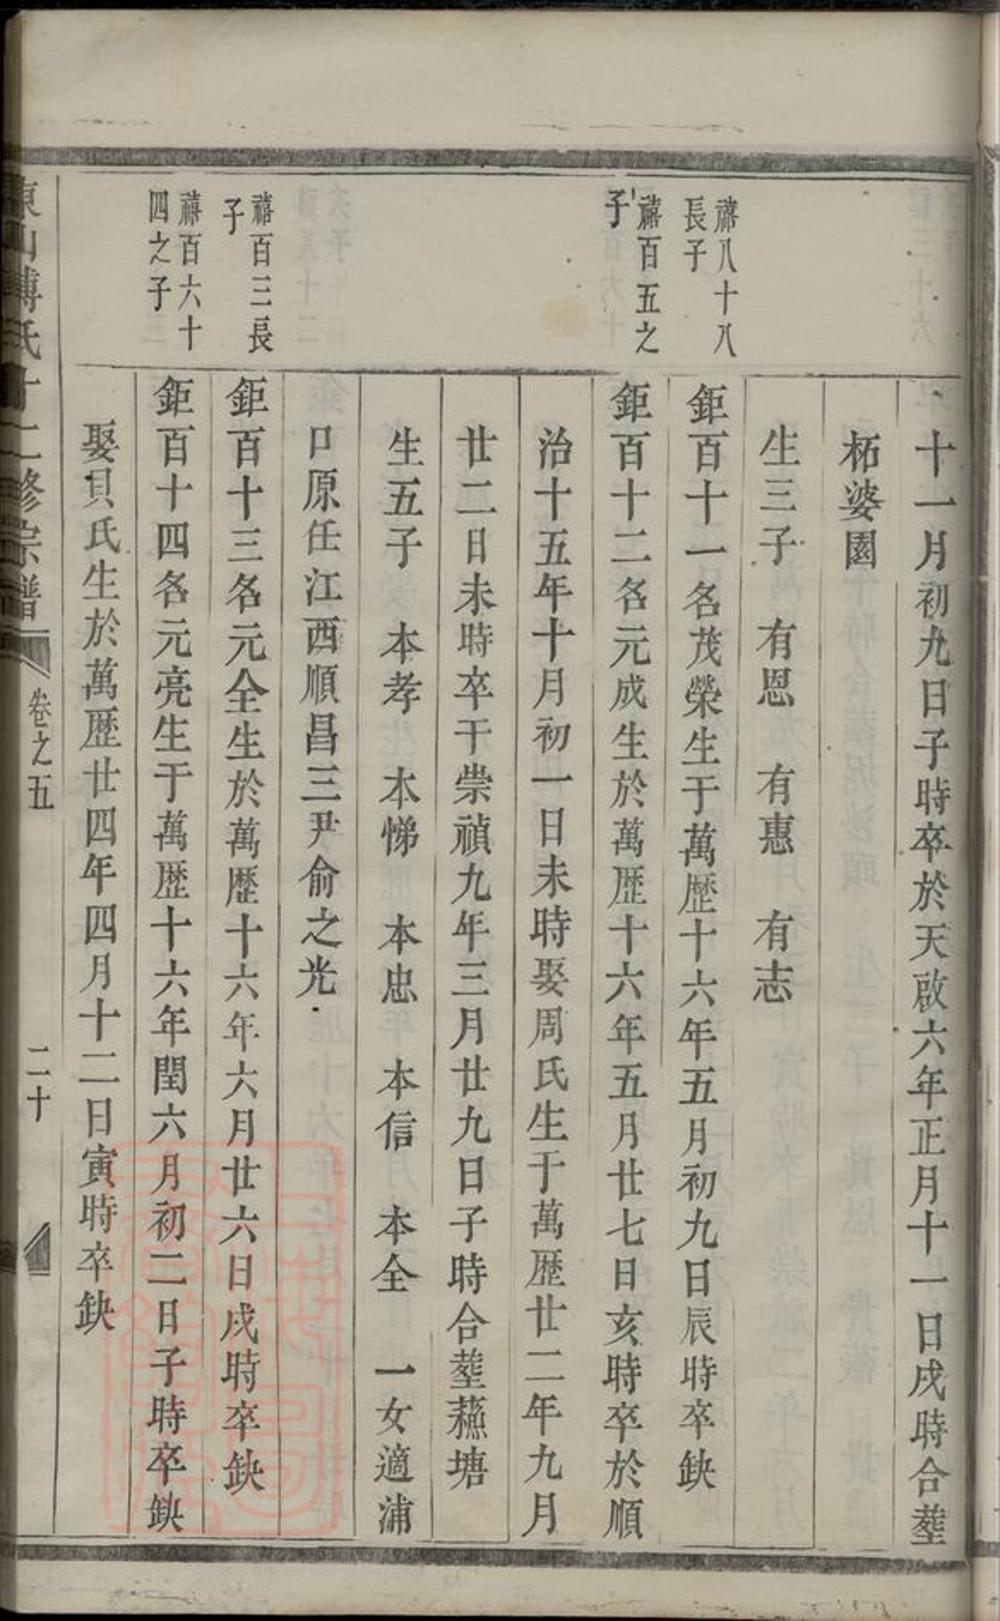 十一月初九日子時卒於天啟六年正月十一日戌時合塟
柘婆園
生三子　有恩　有惠　有志
禧八十八
長子
鉅百十一名茂榮生于萬歷十六年五月初九日辰時卒缺
禧百五之
子
鉅百十二名元成生於萬歷十六年五月廿七日亥時卒於順
治十五年十月初一日未時娶周氏生于萬歷廿二年九月
廿二日未時卒干崇禎九年三月廿九日子時合塟蘓塘
生五子　本孝　本悌　本忠　本信　本全　一女適浦
口原任江西順昌三尹俞之光
禧百三長
子
鉅百十三名元全生於萬歷十六年六月廿六日戌時卒缺
禧百六十
四之子
鉅百十四名元亮生于萬歷十六年閏六月初二日子時卒缺
娶貝氏生於萬歷廿四年四月十二日寅時卒缺
東山傅氏十二修宗譜
卷之五
二十